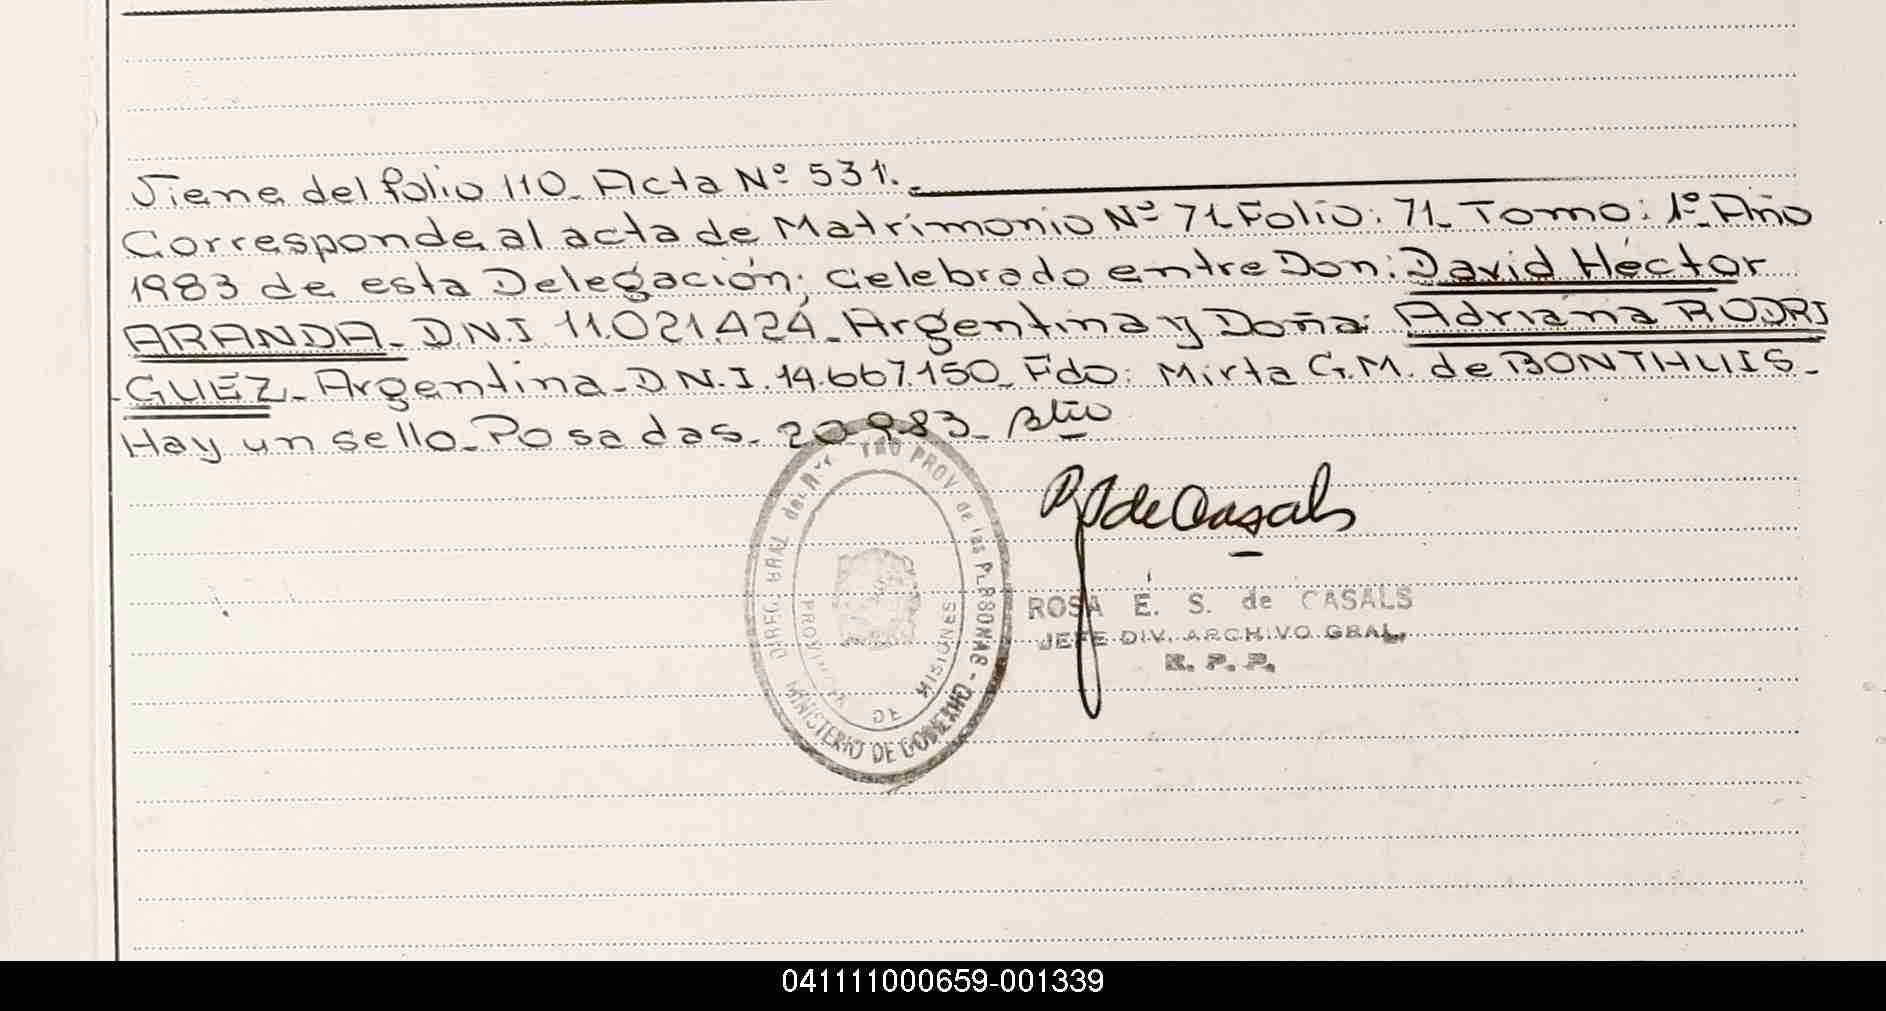 Viene del folio 110. Acta Nº 531.
Corresponde al acta de Matrimonio Nº 71. Folio: 71. Tomo: 1º. Año
1983 de esta Delegación; celebrado entre Don: David Héctor
ARANDA. D.N.I 11.021.424. Argentina y Doña: Adriana RODRI
GUEZ. Argentina. D.N.I. 14.667.150. Fdo: Mirta G.M. de BONTHUIS.
Hay un sello. Posadas. 20.9.83.
de Casals
PROV de las PERSONAS - MINISTERIO DE GOBIERNO
PROVINCIA DE MISIONES
ROSA E. S. de CASALS
JEFE DIV. ARCHIVO GRAL.
R. P. P.
041111000659-001339